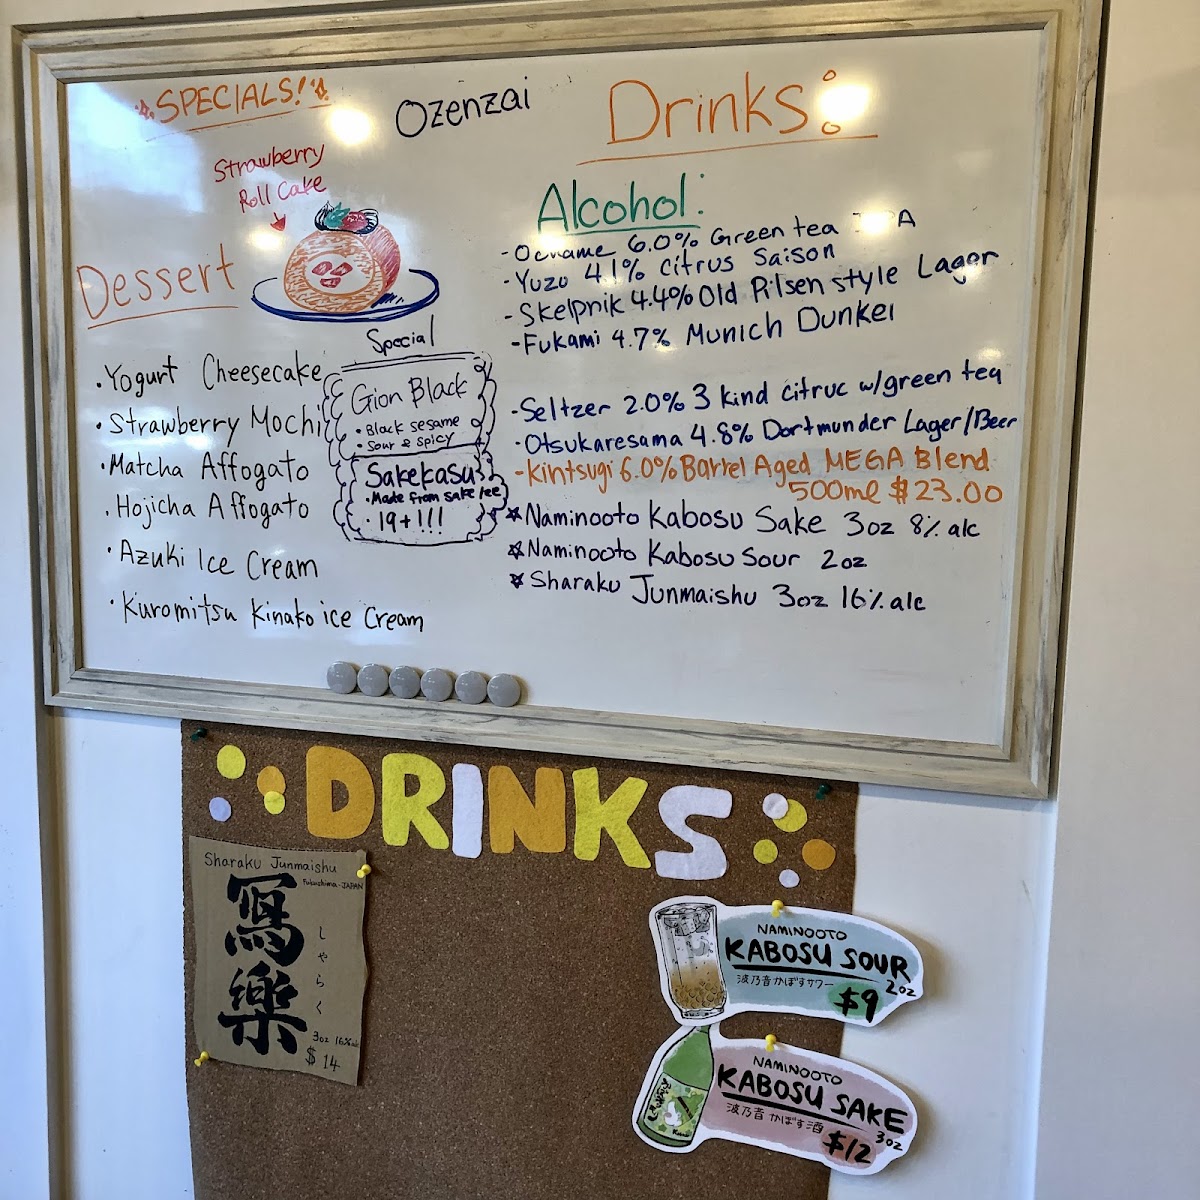 SPECIALS!
Ozenzai
Strawberry
Roll Cake
Dessert
• Yogurt Cheesecake
• Strawberry Mochi
• Matcha Affogato
• Hojicha Affogato
• Azuki Ice Cream
• Kuromitsu Kinako ice Cream
Special
Gion Black
• Black sesame
• Sour & spicy
Sakekasu
• Made from sake
• 19+!!!
Drinks:
Alcohol:
- 6.0% Green tea
- Yuzu 4.1% Citrus Saison
- Skelpnik 4.4% Old Pilsen style Lager
- Fukami 4.7% Munich Dunkel
- Seltzer 2.0% 3 kind citruc w/green tea
- Otsukaresama 4.8% Dortmunder Lager/Beer
- Kintsugi 6.0% Barrel Aged MEGA Blend
500ml $23.00
☆ Naminooto Kabosu Sake 3oz 8% alc
☆ Naminooto Kabosu Sour 2oz
☆ Sharaku Junmaishu 3oz 16% alc
DRINKS
Sharaku Junmaishu
Fukushima-JAPAN
寫樂
しゃらく
3oz 16% alc
$14
NAMINOOTO
KABOSU SOUR
波乃音かぼすサワー
2oz
$9
NAMINOOTO
KABOSU SAKE
波乃音かぼす酒
3oz
$12